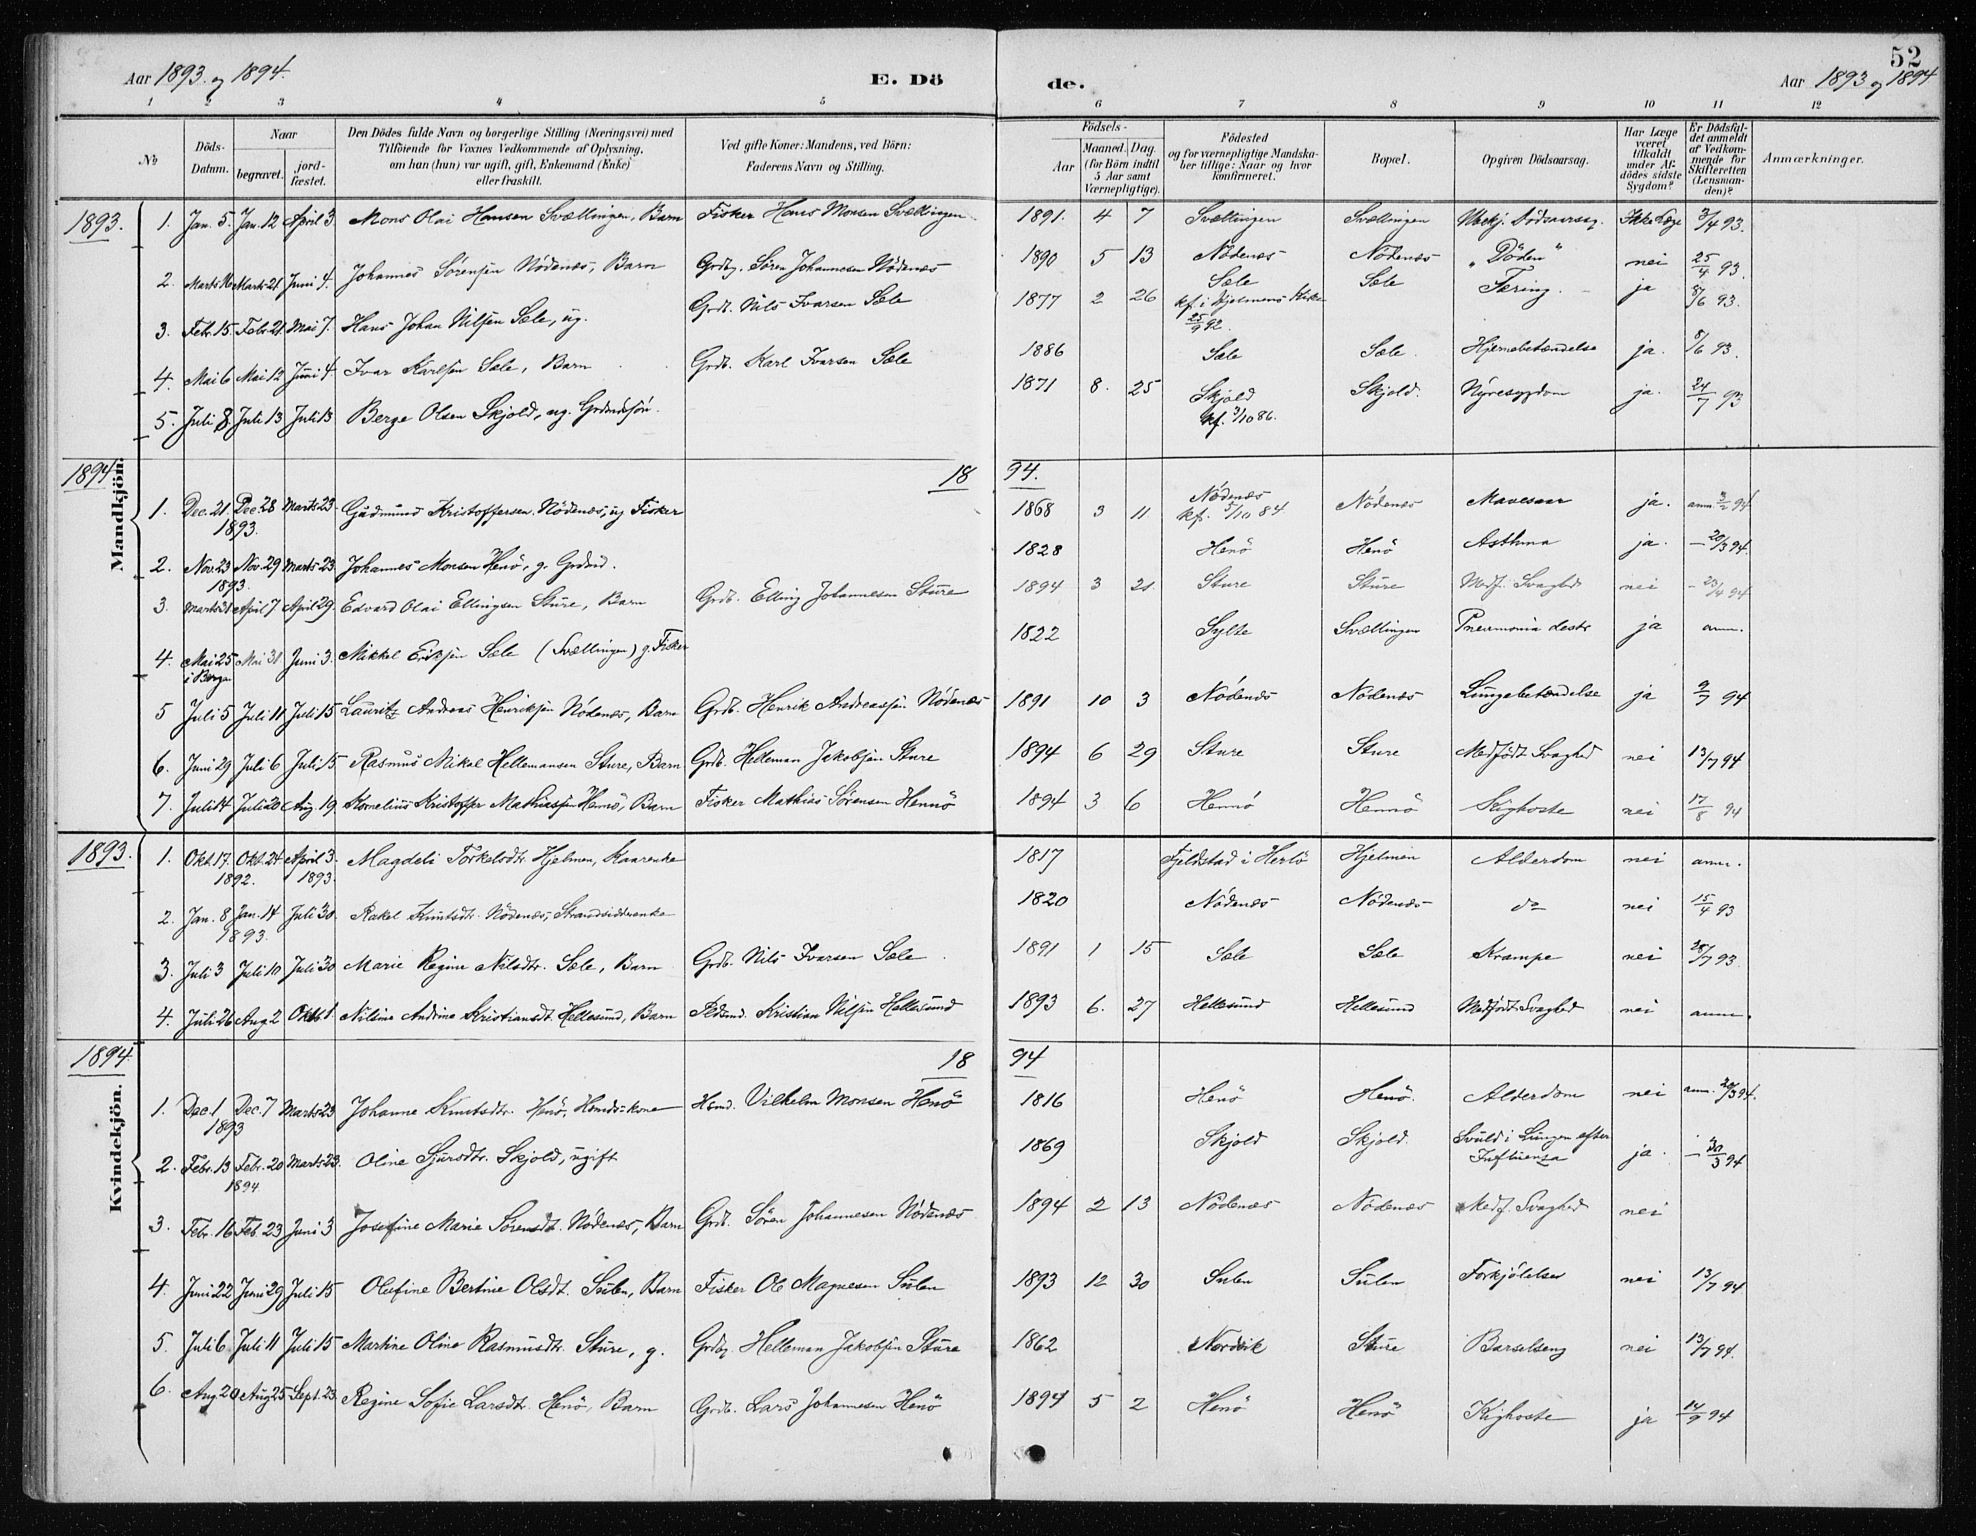 52
Aar 1893 og 1894. E. Dö de. Aar 1893 og 1894
1 2 3 4 5 6 7 8 9 10 11 12
No
Döds-Datum.
Naar begravet. jordfæstet.
Den Dödes fulde Navn og borgerlige Stilling (Næringsvei) med Tilföiende for Voxnes Vedkommende af Oplysning, om han (hun) var ugift, gift, Enkemand (Enke) eller fraskilt.
Ved gifte Koner: Mandens, ved Börn: Faderens Navn og Stilling.
Födsels- Aar Maaned. Dag. (for Börn indtil 5 Aar samt Værnepligtige).
Födested og for værnepligtige Mandskaber tillige: Naar og hvor konfirmeret.
Bopæl.
Opgiven Dödsaarsag.
Har Læge været tilkaldt under Afdödes sidste Sygdom?
Er Dödsfaldet anmeldt af Vedkommende for Skifteretten (Lensmanden)?
Anmærkninger.
Mandkjön.
1893.
1. Jan. 5. Jan. 12 April 3. Mons Olai Hansen Svællingen, Barn Fisker Hans Monsen Svællingen. 1891. 4 7 Svællingen Svællingen Ubekj. Dödsaarsag. Ikke Læge 3/4 93.
2. Marts 16 Marts 21 Juni 4. Johannes Sörensen Nödenæs, Barn Grdbg. Sören Johannesen Nödenæs 1890 5 13 Nödenæs Nödenæs "Döden" nei 25/4 93.
3. Febr. 15 Febr. 21 Mai 7. Hans Johan Nilsen Sæle, ug. Grdb. Nils Ivarsen Sæle 1877 2 26 Sæle kf. i Hjelmens Kirke 25/9 92. Sæle Tæring. ja 8/6 93.
4. Mai 6 Mai 12 Juni 4. Ivar Karlsen Sæle, Barn Grdb. Karl Ivarsen Sæle 1886 Sæle Sæle. Hjernebetændelse ja. 8/6 93.
5. Juli 8 Juli 13 Juli 13 Berge Olsen Skjold, ug. Grdmdssön. 1871 8. 25 Skjold kf. 3/10 86. Skjold. Nyresygdom ja. 24/7 93
1894 18 94.
1. Dec. 21. Dec 28 Marts 23. 1893. Gudmund Kristoffersen Nödenæs, ug Fisker 1868 3 11. Nödenæs kf. 5/10 84 Nödenæs Mavesaar ja. anm. 3/2 94
2. Nov. 23 Nov. 29 Marts 23 1893. Johannes Monsen Henö, g. Grdmd. 1828 Henö Henö Asthma ja. – 20/3 94.
3. Marts 21 April 7 April 29 Edvard Olai Ellingsen Sture, Barn Grdb. Elling Johannesen Sture 1894 3 21. Sture Sture Medf. Svaghed nei – 23/4 94
4. Mai 25 Mai 31 Juni 3. i Bergen Mikkel Eriksen Sæle (Svællingen) g. Fisker 1822 Sylte Svællingen Pneumonia destr ja anm.
5 Juli 5 Juli 11 Juli 15 Lauritz Andreas Henriksen Nödenæs, Barn Grdb. Henrik Andreassen Nödenæs 1891 10 3 Nödenæs Nödenæs Lungebetændelse ja 9/7 94
6. Juni 29 Juli 6 Juli 15 Rasmus Mikal Hellemansen Sture, Barn Grdb. Helleman Jakobsen Sture 1894 6 29 Sture Sture Medfödt Svaghed nei 13/7 94
7. Juli 14 Juli 20 Aug. 19. Kornelius Kristoffer Mathiassen Hennö, Barn Fisker Mathias Sörensen Hennö 1894 3 6 Hennö Hennö Kighoste nei 17/8 94
Kvindekjön.
1893.
1. Okt. 17. Okt. 24 April 3. 1892. 1893. Magdeli Torkelsdtr. Hjelmen, Kaarenke 1817 Fjeldstad i Herlö Hjelmen Alderdom nei anm.
2. Jan. 8 Jan. 14 Juli 30. 1893. Rakel Knutsdtr. Nödenæs, Strandsidderenke 1820 Nödenæs Nödenæs do nei 15/4 93
3. Juli 3 Juli 10 Juli 30 Marie Regine Nilsdtr. Sæle, Barn Grdb. Nils Ivarsen Sæle. 1891 1 15 Sæle Sæle Krampe nei 28/7 93
4. Juli 26 Aug 2 Okt 1. Nilsine Andrine Kristiansdt. Hellesund, Barn Kristian Nilsen Hellesund 1893 6. 27 Hellesund Hellesund Medfödt Svaghed nei anm.
1894. 18 94
1. Dec. 1 Dec. 7 Marts 23 1893 Johanne Knutsdtr. Henö, Hmds-kone Hsmd. Vilhelm Monsen Henö 1816 Henö Henö. Alderdom nei anm. 20/3 94.
2. Febr. 13 Febr. 20 Marts 23. 1894 Oline Sjursdtr. Skjold, ugift 1869 Skjold Skjold. Svuld i Lungen efter Influenza ja. – 30/3 94
3. Febr. 16 Feb. 23 Juni 3 Josefine Marie Sörensdt. Nödenæs, Barn Grdb. Sören Johannesen Nödenæs 1894 2 13 Nödenæs Nödenæs Medf. Svaghed nei
4. Juni 22 Juni 29 Juli 15 Olefine Bertine Olsdt. Sulen, Barn Fisker Ole Magnesen Sulen 1893 12 30 Sulen Sulen Forkjölelse nei 13/7 94.
5. Juli 6 Juli 11 Juli 15 Martine Oline Rasmusdtr. Sture, g. Grdbg Helleman Jakobsen Sture 1862 Nordvik Sture Barselseng nei 13/7 94.
6. Aug. 20 Aug 25 Sept. 23. Regine Sofie Larsdtr. Henö, Barn Grdb. Lars Johannesen Henö 1894 5 2 Henö Henö Kighoste ja 14/9 94